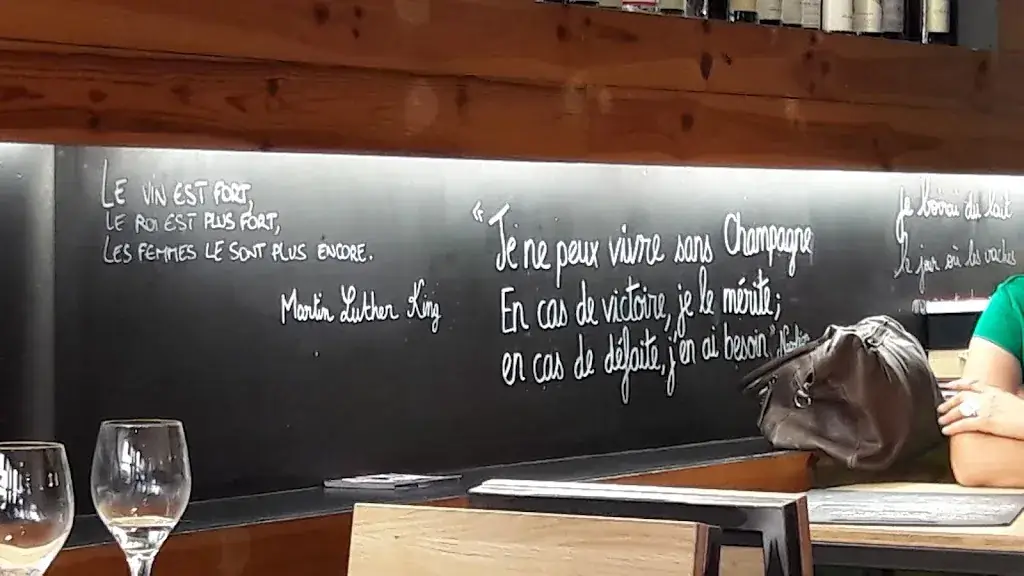 LE VIN EST FORT,
LE ROI EST PLUS FORT,
LES FEMMES LE SONT PLUS ENCORE.
Martin Luther King
“Je ne peux vivre sans Champagne
En cas de victoire, je le mérite ;
en cas de défaite, j'en ai besoin”
Je boirai du lait
le jour où les vaches